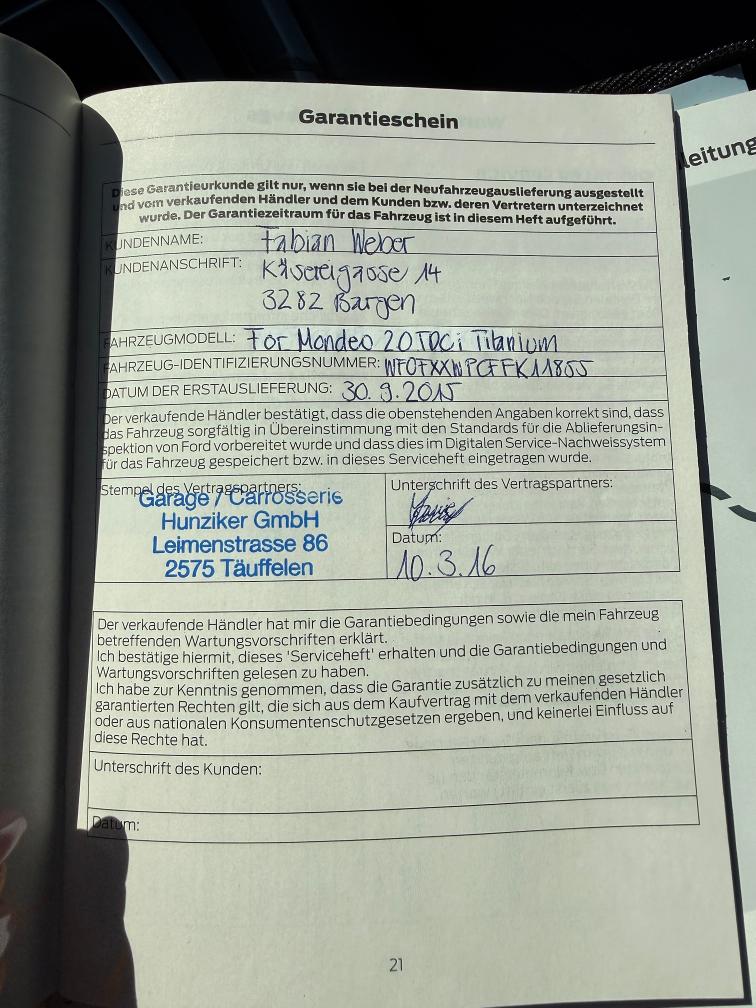 Garantieschein
leitung
Diese Garantieurkunde gilt nur, wenn sie bei der Neufahrzeugauslieferung ausgestellt
und vom verkaufenden Händler und dem Kunden bzw. deren Vertretern unterzeichnet
wurde. Der Garantiezeitraum für das Fahrzeug ist in diesem Heft aufgeführt.
KUNDENNAME: Fabian Weber
KUNDENANSCHRIFT: Käsereigasse 14
3282 Bargen
FAHRZEUGMODELL: For Mondeo 2.0 TDCi Titanium
FAHRZEUG-IDENTIFIZIERUNGSNUMMER: WF0FXXWPCFFK11855
DATUM DER ERSTAUSLIEFERUNG: 30.9.2015
Der verkaufende Händler bestätigt, dass die obenstehenden Angaben korrekt sind, dass
das Fahrzeug sorgfältig in Übereinstimmung mit den Standards für die Ablieferungsin-
spektion von Ford vorbereitet wurde und dass dies im Digitalen Service-Nachweissystem
für das Fahrzeug gespeichert bzw. in dieses Serviceheft eingetragen wurde.
Stempel des Vertragspartners:
Garage / Carrosserie
Hunziker GmbH
Leimenstrasse 86
2575 Täuffelen
Unterschrift des Vertragspartners:
Datum:
10.3.16
Der verkaufende Händler hat mir die Garantiebedingungen sowie die mein Fahrzeug
betreffenden Wartungsvorschriften erklärt.
Ich bestätige hiermit, dieses 'Serviceheft' erhalten und die Garantiebedingungen und
Wartungsvorschriften gelesen zu haben.
Ich habe zur Kenntnis genommen, dass die Garantie zusätzlich zu meinen gesetzlich
garantierten Rechten gilt, die sich aus dem Kaufvertrag mit dem verkaufenden Händler
oder aus nationalen Konsumentenschutzgesetzen ergeben, und keinerlei Einfluss auf
diese Rechte hat.
Unterschrift des Kunden:
Datum:
21